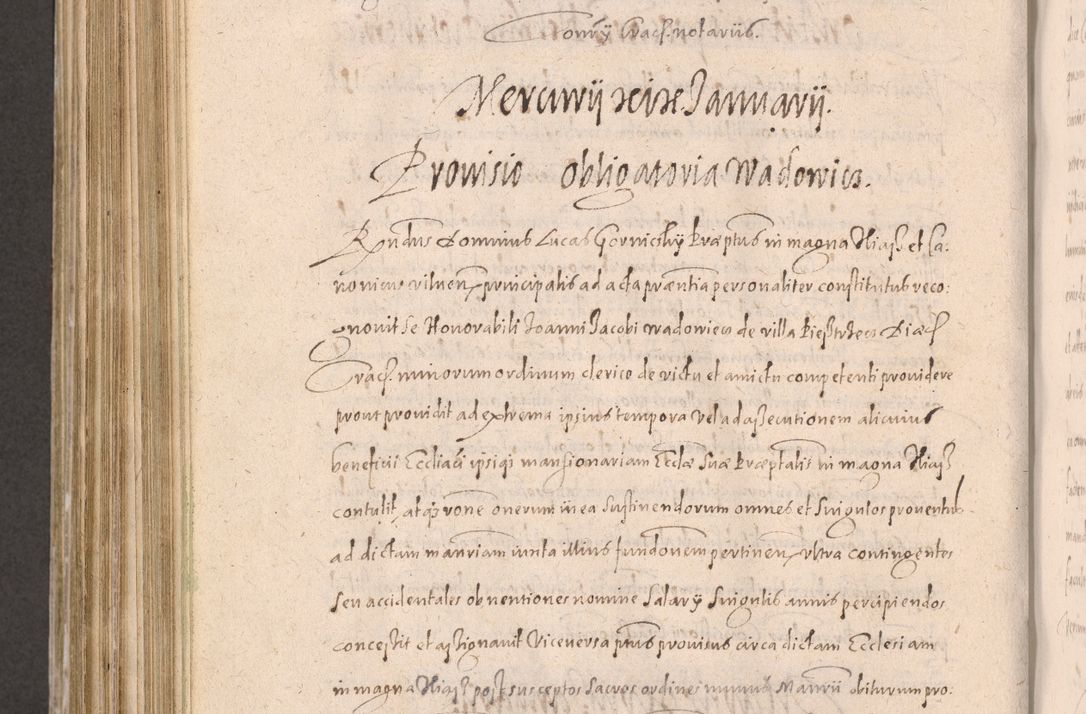 Conry Crac. notarius.
Mercurij xxix Januarij.
Provisio obligatoria Wadowics.
Rndus Dominus Lucas Gornicskij Præptus in magna Kiąs et Ca:
nonicus vilnen principalis ad acta præntia personaliter constitutus reco:
gnovit se Honorabili Joanni Jacobi Wadowics de villa Diæc
Crac. minorum ordinum clerico de victu et amictu competenti providere
prout providit ad extrema ipsius tempora vel ad assecutionem alicuius
beneficii Eccliaci ipsiqȝ mansionariam Ecclæ suæ Præptalis in magna Kiąs
contulit atqȝ rone onerum in ea sustinendorum omnes et singulos proventus
ad dictam manriam iuxta illius fundonem pertinen ultra contingentes
seu accidentales obventiones nomine salarij singulis annis percipiendos
concessit et assignavit Viceversa ptus provisus circa dictam Ecclesiam
in magna Kiąs post susceptos sacros ordines munus Manrij obiturum pro: